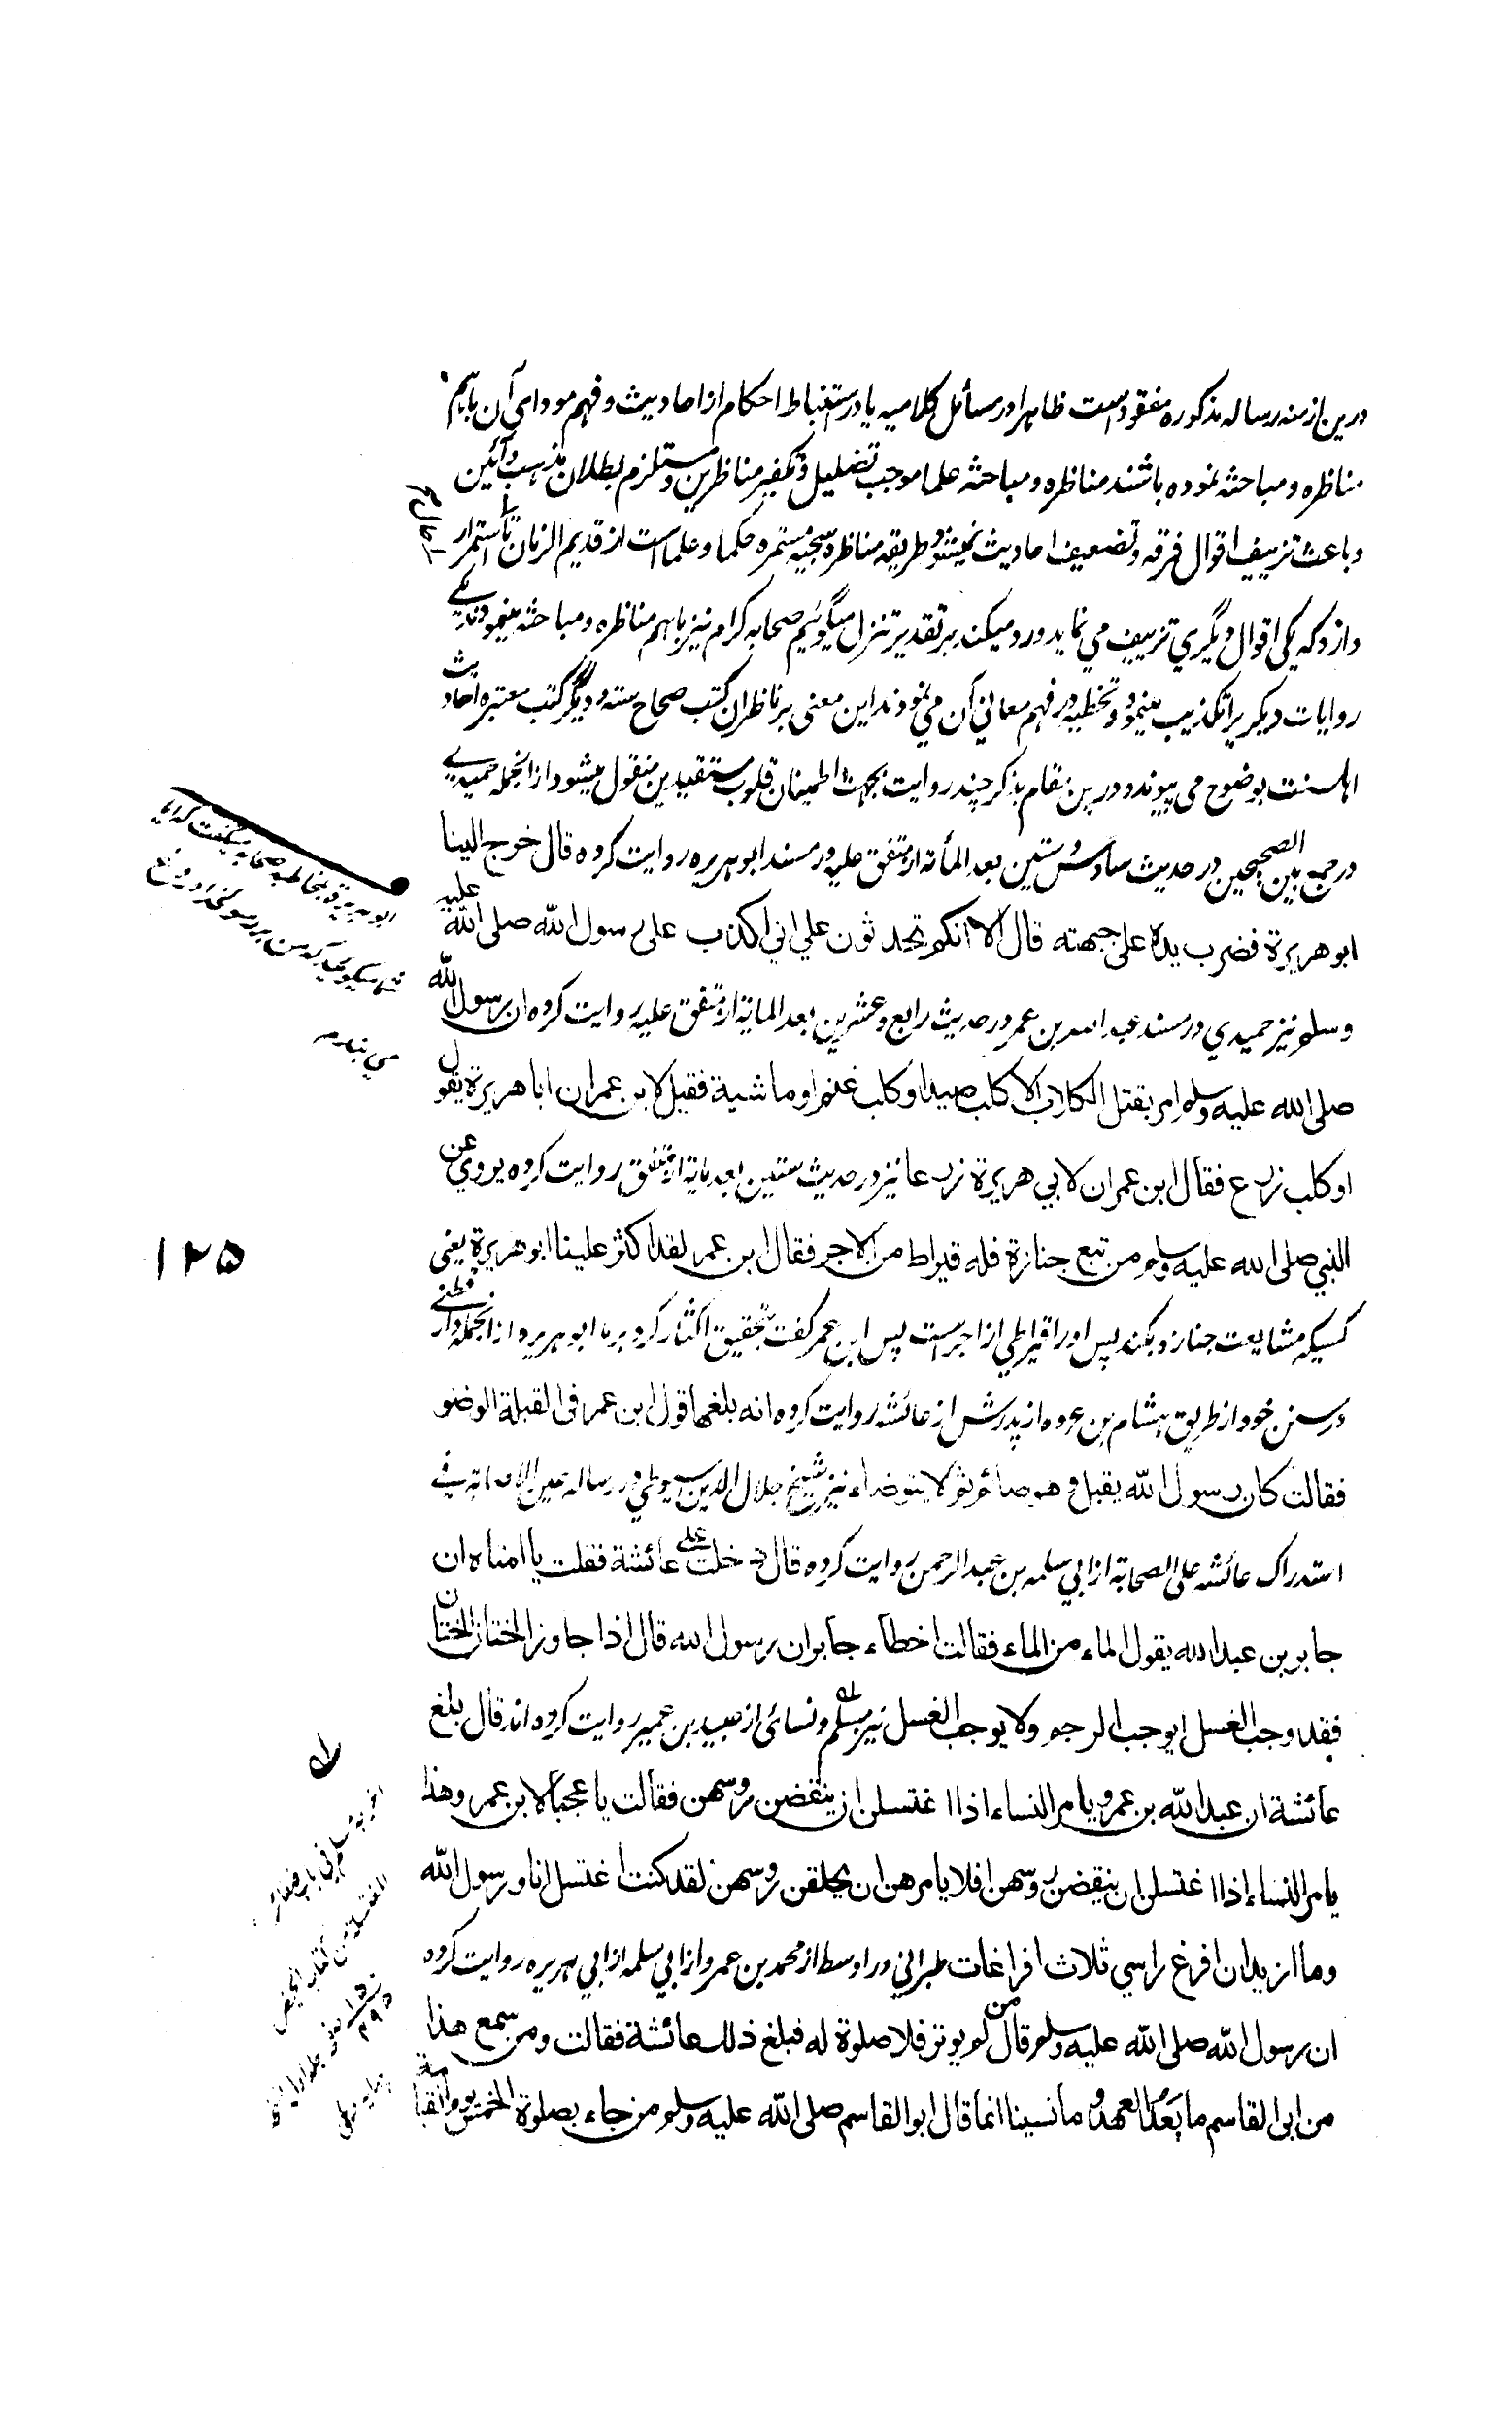 درین ازمنه رساله مذکوره مفقود است ظاهرا در مسائل کلامیه یا در استنباط احکام از احادیث و فهم مودای آن باهم
مناظره و مباحثه نموده باشند مناظره و مباحثه علما موجب تضلیل و تکفیر مناظرین و مستلزم بطلان مذهب و آئین
و باعث تزییف اقوال فرقه و تضعیف احادیث نمیشود و طریقه مناظره سجیه مستمره حکما و علما است از قدیم الزمان تا استمرار
دارد که یکی اقوال دیگری تزییف می نماید و رد میکند بر تقدیر تنزل میگوئیم صحابه کرام نیز باهم مناظره و مباحثه مینمودند یکی
روایات دیگر را تکذیب مینمود و تخطیه در فهم معانی آن می نمودند این معنی بر ناظران کتب صحاح سته و دیگر کتب معتبره احادیث
اهلسنت بوضوح می پیوندد درین مقام بذکر چند روایت بجهت اطمینان قلوب مستفیدین منقول میشود از انجمله حمیدی
در جمع بین الصحیحین در حدیث سادس و ستین بعد المأتة از متفق علیه در مسند ابو هریره روایت کرده قال خرج الینا
ابو هریرة فضرب یده علی جبهته قال الا انکم تحدثون علی انی اکذب علی رسول الله صلی الله علیه
وسلم نیز حمیدی در مسند عبد الله بن عمر در حدیث رابع و عشرین بعد المایة از متفق علیه روایت کرده ان رسول الله
صلی الله علیه وسلم امر بقتل الکلاب الا کلب صید او کلب غنم او ماشیة فقیل لابن عمر ان ابا هریرة یقول
او کلب زرع فقال ابن عمر ان لابی هریرة زرعا نیز در حدیث ستین بعد مایة از متفق روایت کرده یروی عن
النبی صلی الله علیه وسلم من تبع جنازة فله قیراط من الاجر فقال ابن عمر لقد اکثر علینا ابو هریرة یعنی
کسیکه مشایعت جنازه بکند پس او را قیراطی از اجر است پس ابن عمر گفت بتحقیق اکثار کرد بر ما ابو هریره از انجمله دار قطنی
در سنن خود از طریق هشام بن عروه از پدرش از عائشه روایت کرده انه بلغها قول ابن عمر فی القبلة الوضو
فقالت کان رسول الله یقبل و هو صائم ثم لا یتوضاء نیز شیخ جلال الدین سیوطی در رساله عین الاصابه فی
استدراک عائشه علی الصحابة از ابی سلمه بن عبد الرحمن روایت کرده قال دخلت علی عائشة فقلت یا امناه ان
جابر بن عبد الله یقول الماء من الماء فقالت اخطاء جابر ان رسول الله قال اذا جاوز الختان الختان
فقد وجب الغسل ایوجب الرجم ولا یوجب الغسل نیز مسلم و نسائی از عبید بن عمیر روایت کرده انه قال بلغ
عائشة ان عبد الله بن عمرو یامر النساء اذا اغتسلن ان ینقضن رؤسهن فقالت یا عجبا لابن عمر و هذا
یامر النساء اذا اغتسلن ان ینقضن رؤسهن افلا یامرهن ان یحلقن رؤسهن لقد کنت اغتسل انا و رسول الله
وما ازید ان افرغ راسی ثلاث افراغات طبرانی در اوسط از محمد بن عمرو از ابی سلمه از ابی هریره روایت کرده
ان رسول الله صلی الله علیه وسلم قال من لم یوتر فلا صلوة له فبلغ ذلک عائشة فقالت ومن سمع هذا
من ابی القاسم ما بعد العهد و ما نسینا انما قال ابو القاسم صلی الله علیه وسلم من جاء بصلوة الخمس یوم القیامة
ابو هریرة بمخاطبه صحابه میگفت که آیا
شما میگوئید که من بر رسول خدا دروغ
می بندم
۱۲۵
اخرجه مسلم فی باب ضفائر
المغتسلة من کتاب الحیض